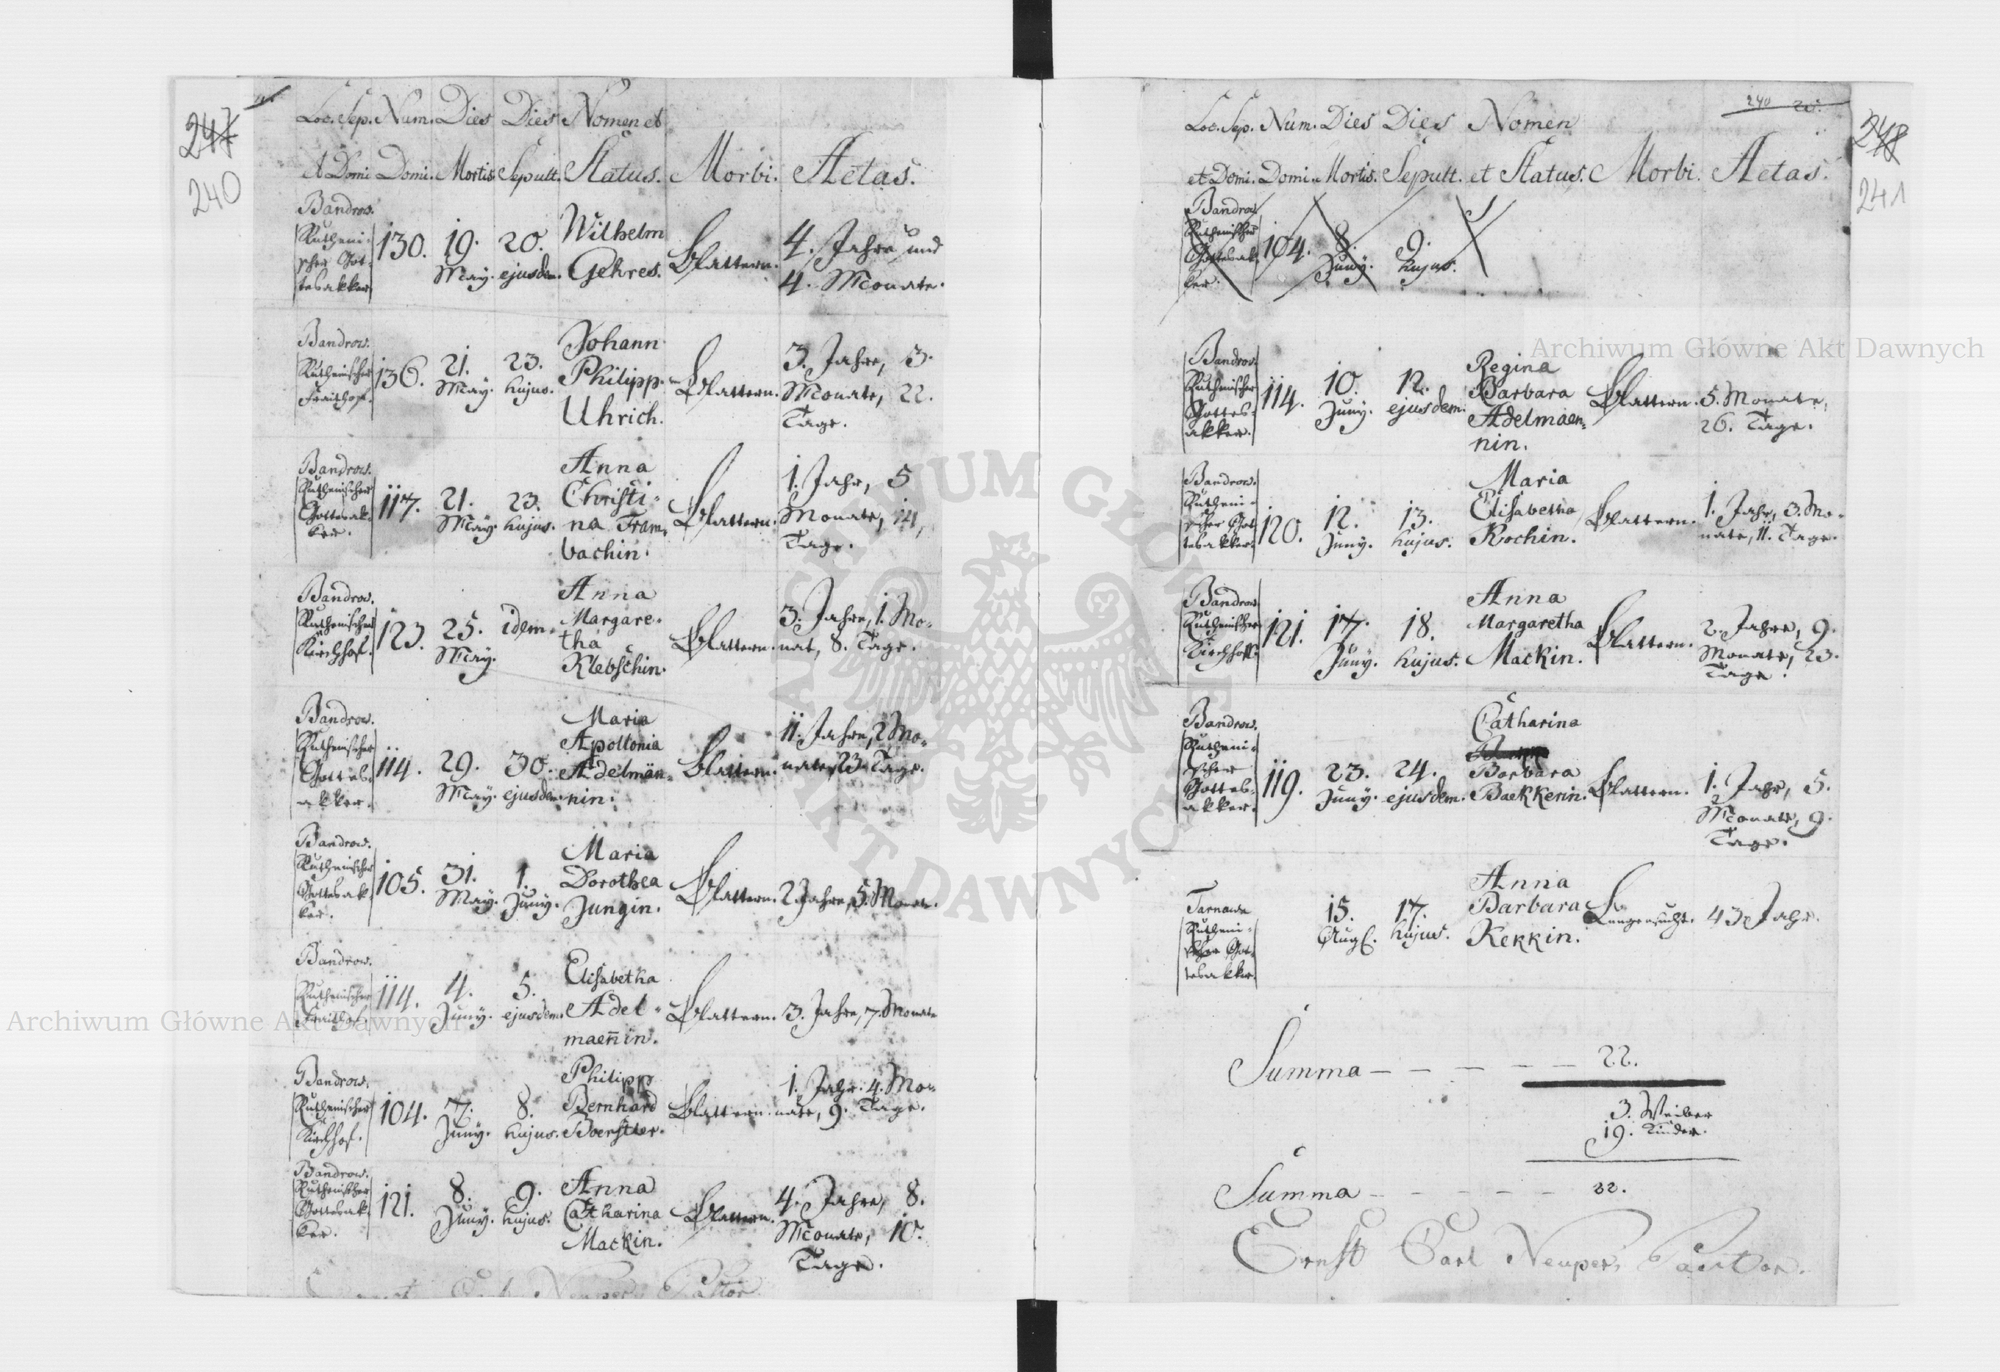 247
240
Loc. Sep. Num. Dies Dies Nomen et
et Domi Domi. Mortis. Sepult. Status. Morbi. Aetas.
Bandrow.
Rutheni-
scher Got-
tesakker
130. 19. May. 20. ejusdem.
Wilhelm
Gehres.
Blattern.
4. Jahre, und
4. Monate.
Bandrow.
Ruthenischer
Fraithof.
136. 21. May. 23. hujus.
Johann
Philipp
Uhrich.
Blattern.
3. Jahre, 3.
Monate, 22.
Tage.
Bandrow.
Ruthenischer
Gottesak-
ker.
117. 21. May. 23. hujus.
Anna
Christi-
na Fram-
bachin.
Blattern.
1. Jahr, 5
Monate, 14,
Tage.
Bandrow.
Ruthenischer
Kirchhof.
123. 25. May. idem.
Anna
Margare-
tha
Klebschin.
Blattern.
3. Jahre, 1. Mo-
nat, 8. Tage.
Bandrow.
Ruthenischer
Gottes-
akker.
114. 29. May. 30. ejusdem.
Maria
Apollonia
Adelmän-
nin.
Blattern.
11. Jahre, 2 Mo-
nate, 23 Tage.
Bandrow.
Ruthenischer
Gottesak-
ker.
105. 31. May. 1. Juny.
Maria
Dorothea
Jungin.
Blattern.
2 Jahre, 5. Monat.
Bandrow.
Ruthenischer
Fraithof.
114. 4. Juny. 5. ejusdem.
Elisabetha
Adel-
maen̄in.
Blattern.
3. Jahre, 7. Monate
Bandrow.
Ruthenischer
Kirchhof.
104. 7. Juny. 8. hujus.
Philipp
Bernhard
Boerstler.
Blattern.
1. Jahr. 4. Mo-
nate, 9. Tage.
Bandrow.
Ruthenischer
Gottesak-
ker.
121. 8. Juny. 9. hujus.
Anna
Catharina
Mackin.
Blattern.
4. Jahre, 8.
Monate, 10.
Tage.
Ernst Carl Neuper Pastor
240
248
241
Loc. Sep. Num. Dies Dies Nomen
et Domi. Domi. Mortis. Sepult. et Status. Morbi. Aetas.
Bandrow
Ruthenischer
Gottesak-
ker.
104. 8. Juny. 9. hujus.
Bandrow.
Ruthenischer
Gottes-
akker.
114. 10. Juny. 12. ejusdem.
Regina
Barbara
Adelmaen-
nin.
Blattern.
5. Monate,
26. Tage.
Bandrow.
Rutheni-
scher Got-
tesakker.
120. 12. Juny. 13. hujus.
Maria
Elisabetha
Kochin.
Blattern.
1. Jahr, 3. Mo-
nate, 11. Tage.
Bandrow.
Ruthenischer
Kirchhoff.
121. 17. Juny. 18. hujus.
Anna
Margaretha
Mackin.
Blattern.
2. Jahre, 9.
Monate, 23.
Tage.
Bandrow.
Rutheni-
scher
Gottes-
akker.
119. 23. Juny. 24. ejusdem.
Catharina
Barbara
Baekkerin.
Blattern.
1. Jahr, 5.
Monate, 9.
Tage.
Tarnawa
Rutheni-
scher Got-
tesakker.
15. Aug. 17. hujus.
Anna
Barbara
Kekkin.
Lungensucht.
43 Jahr.
Summa 22.
3. Weiber
19. Kinder.
Summa 22.
Ernst Carl Neuper, Pastor.
Archiwum Główne Akt Dawnych
Archiwum Główne Akt Dawnych
ARCHIWUM GŁÓWNE AKT DAWNYCH